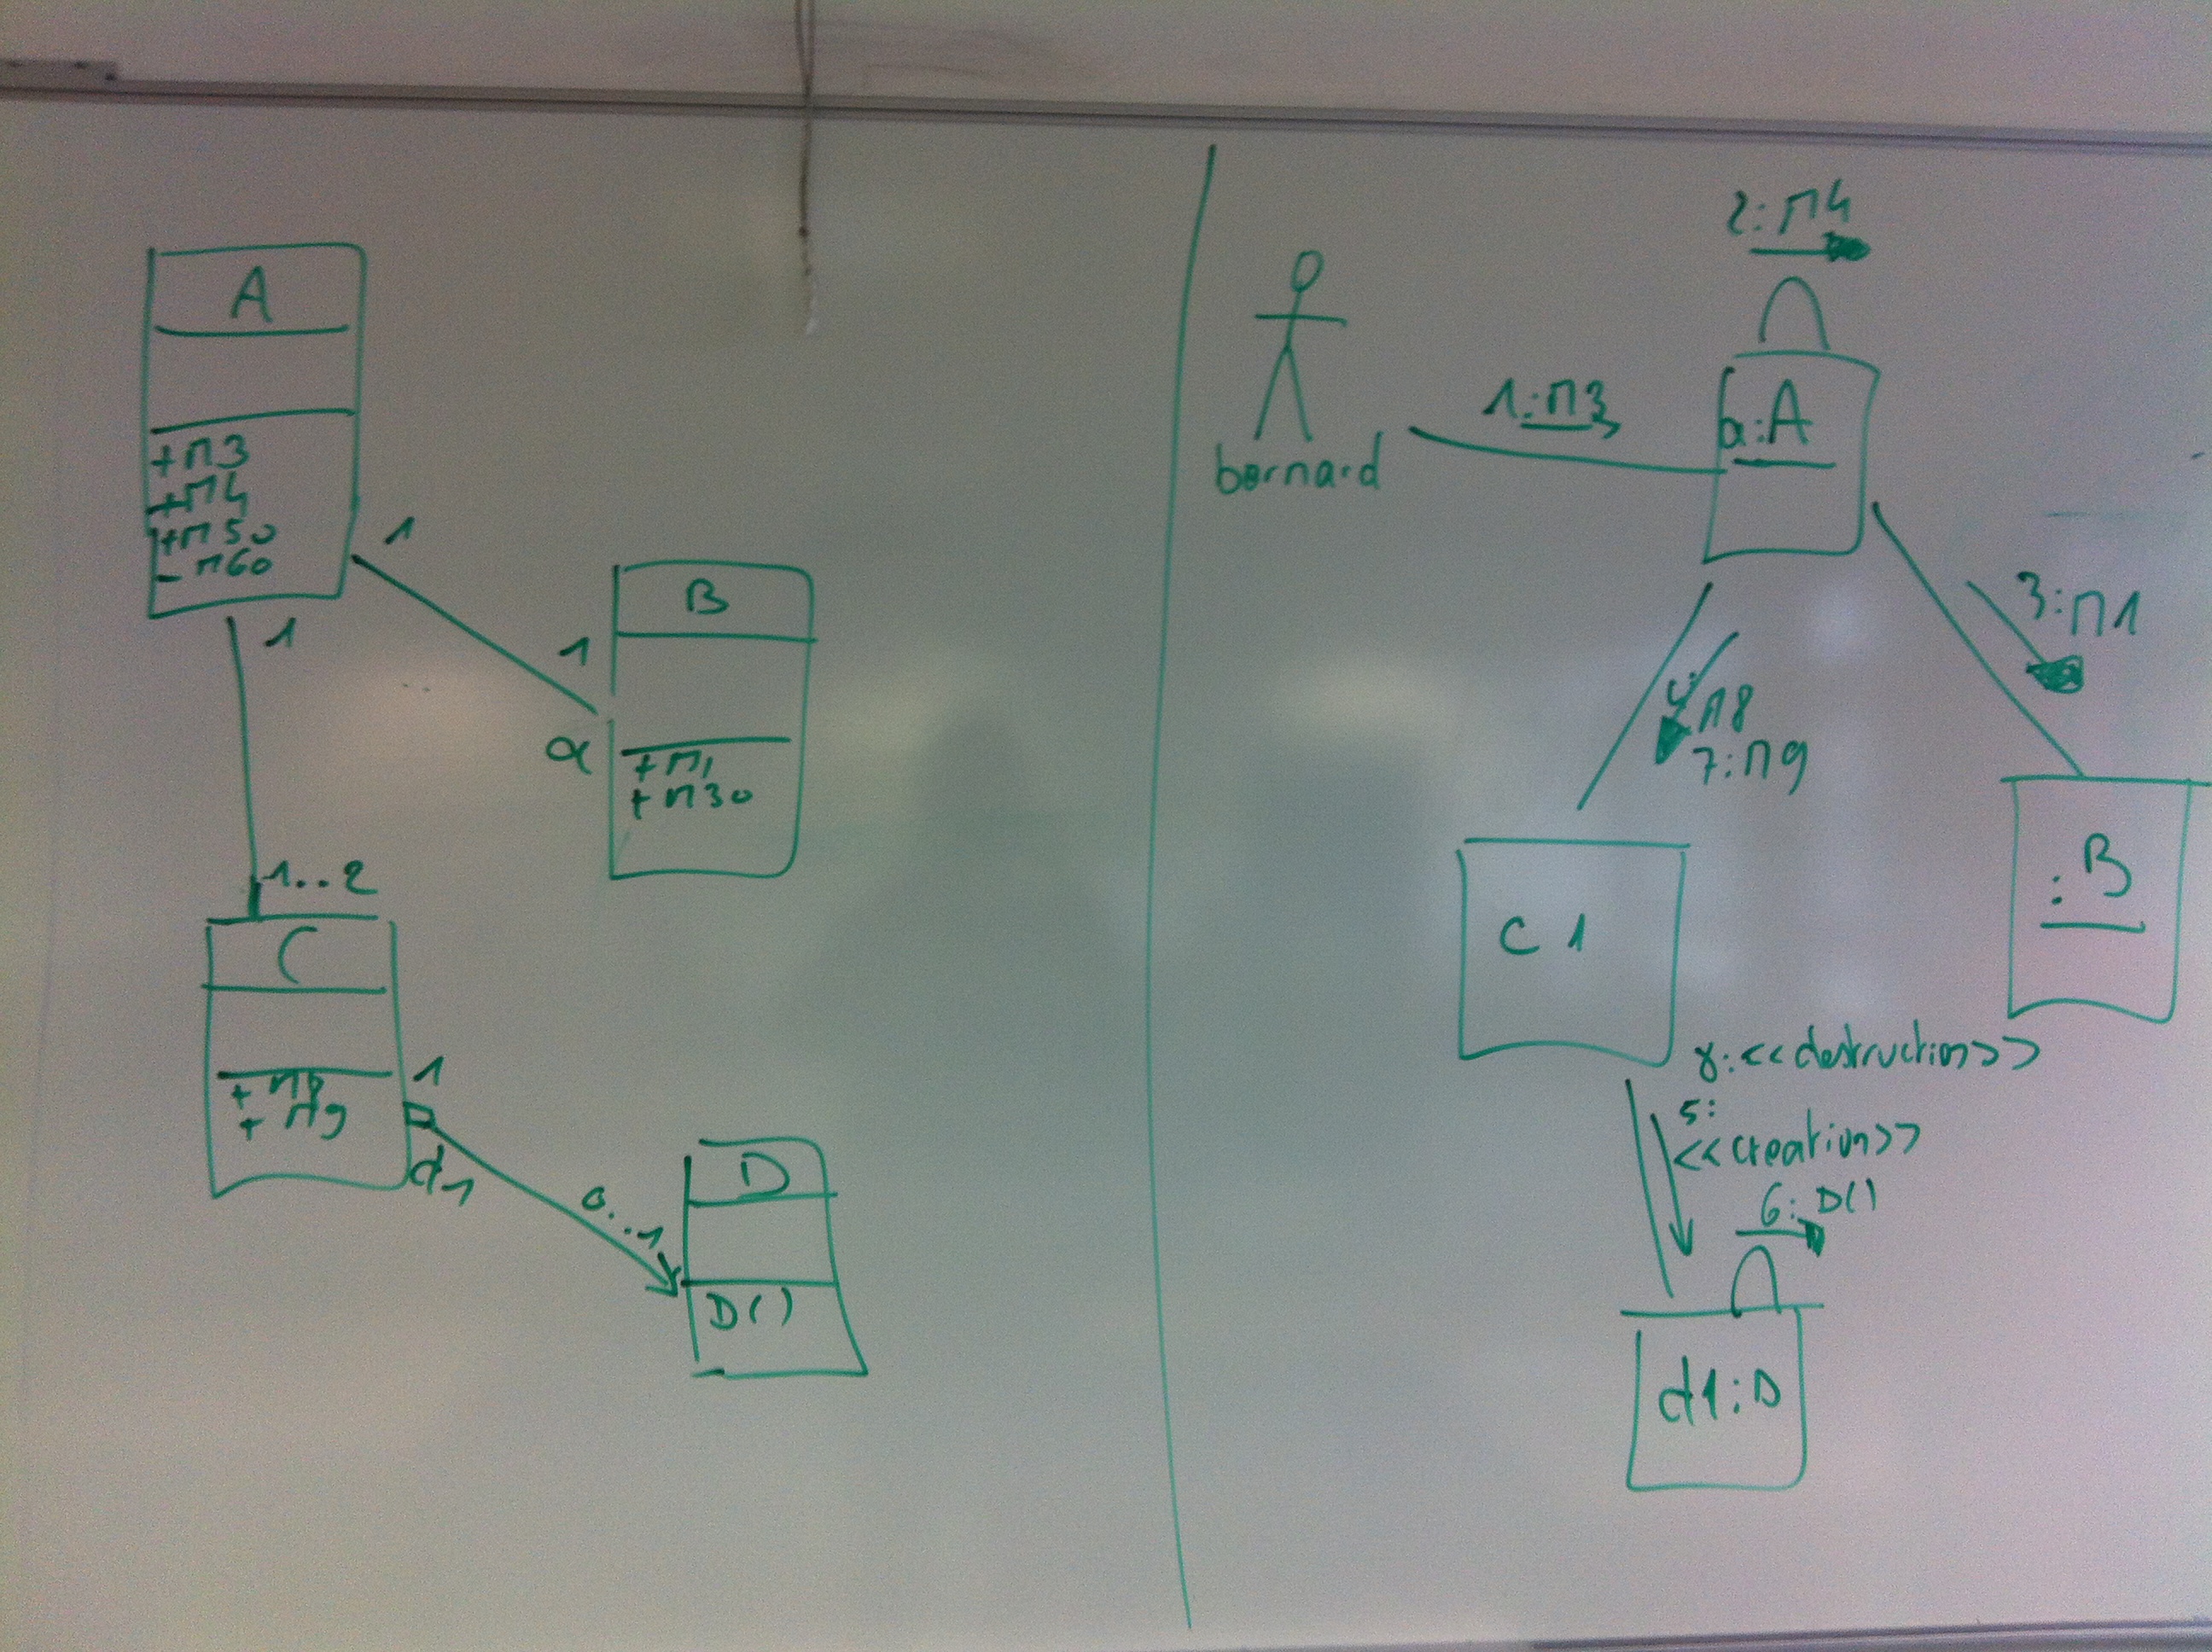 A
+M3
+M4
+M50
- M60
1
1
1
B
α
+M1
+M30
1..2
C
+ M8
+ M9
1
d1
0..1
D
D()
2:M4
1:M3
bernard
a:A
3:M1
4:
M8
7:M9
C1
:B
8:<<destruction>>
5:
<<creation>>
6:D()
d1:D